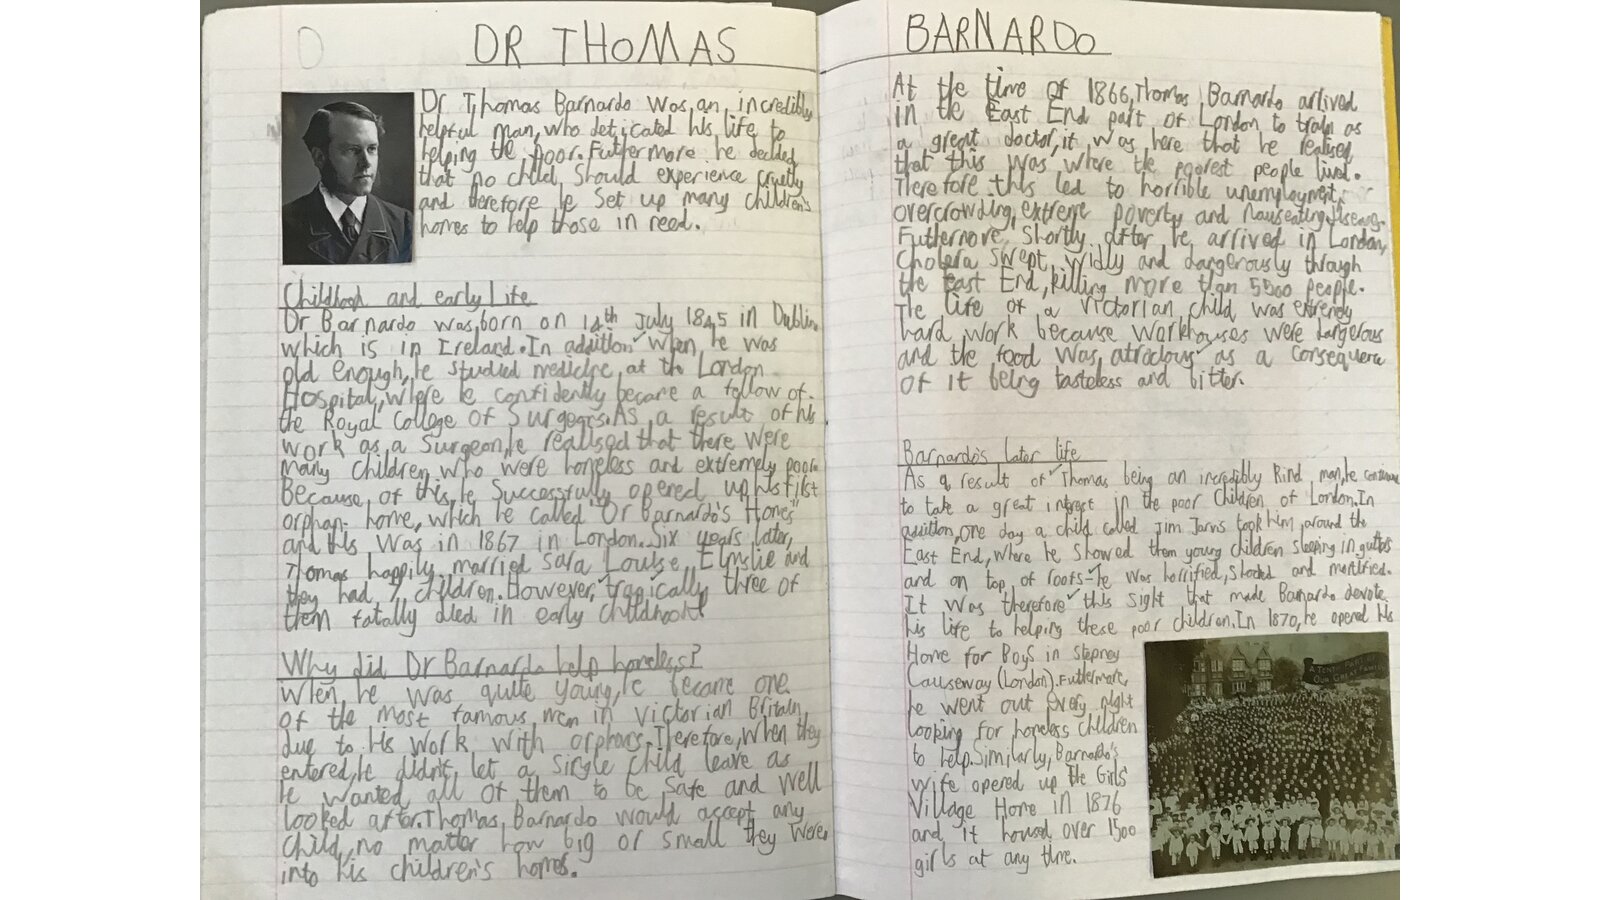 DR THOMAS
Dr Thomas Barnardo was an incredibly
helpful man, who deticated his life to
helping the poor. Futhermore he decided
that no child should experience cruelty
and therefore he set up many children's
homes to help those in need.
Childhood and early Life
Dr Barnardo was born on 14th July 1845 in Dublin
which is in Ireland. In addition when he was
old enough, he studied medicine, at the London
Hospital, where he confidently became a fellow of
the Royal College of Surgeons. As a result of his
work as a surgeon, he realised that there were
many children who were homeless and extremely poor.
Because of this, he successfully opened up his first
orphan home, which he called "Dr Barnardo's Homes"
and this was in 1867 in London. Six years later,
Thomas happily married Sara Louise Elmslie and
they had 7 children. However, tragically three of
them fatally died in early childhood!
Why did Dr Barnardo help homeless?
When he was quite young, he became one
of the most famous men in Victorian Britain,
due to his work with orphans. Therefore, when they
entered, he didn't let a single child leave as
he wanted all of them to be safe and well
looked after. Thomas Barnardo would accept any
child, no matter how big or small they were
into his children's homes.
BARNARDO
At the time of 1866, Thomas Barnardo arrived
in the East End part of London to train as
a great doctor, it was here that he realised
that this was where the poorest people lived.
Therefore this led to horrible unemployment,
overcrowding, extreme poverty and nauseating disease.
Futhermore, shortly after he arrived in London,
Cholera swept wildly and dangerously through
the East End, killing more than 5500 people.
The life of a Victorian child was extremly
hard work because workhouses were dangerous
and the food was atrocious as a consequence
of it being tasteless and bitter.
Barnardo's later life
As a result of Thomas being an incredibly kind man, he
to take a great interest in the poor children of London. In
addition, one day a child called Jim Jarvis took him around the
East End, where he showed them young children sleeping in gutters
and on top of roofs- he was horrified, shocked and mortified.
It was therefore this sight that made Barnardo devote
his life to helping these poor children. In 1870, he opened his
Home for Boys in Stepney
Causeway (London). Futhermore,
he went out every night
looking for homeless children
to help. Similarly, Barnardo's
wife opened up The Girls'
Village Home in 1876
and it housed over 1500
girls at any time.
A TENTH PART OF
OUR GREAT FAMILY